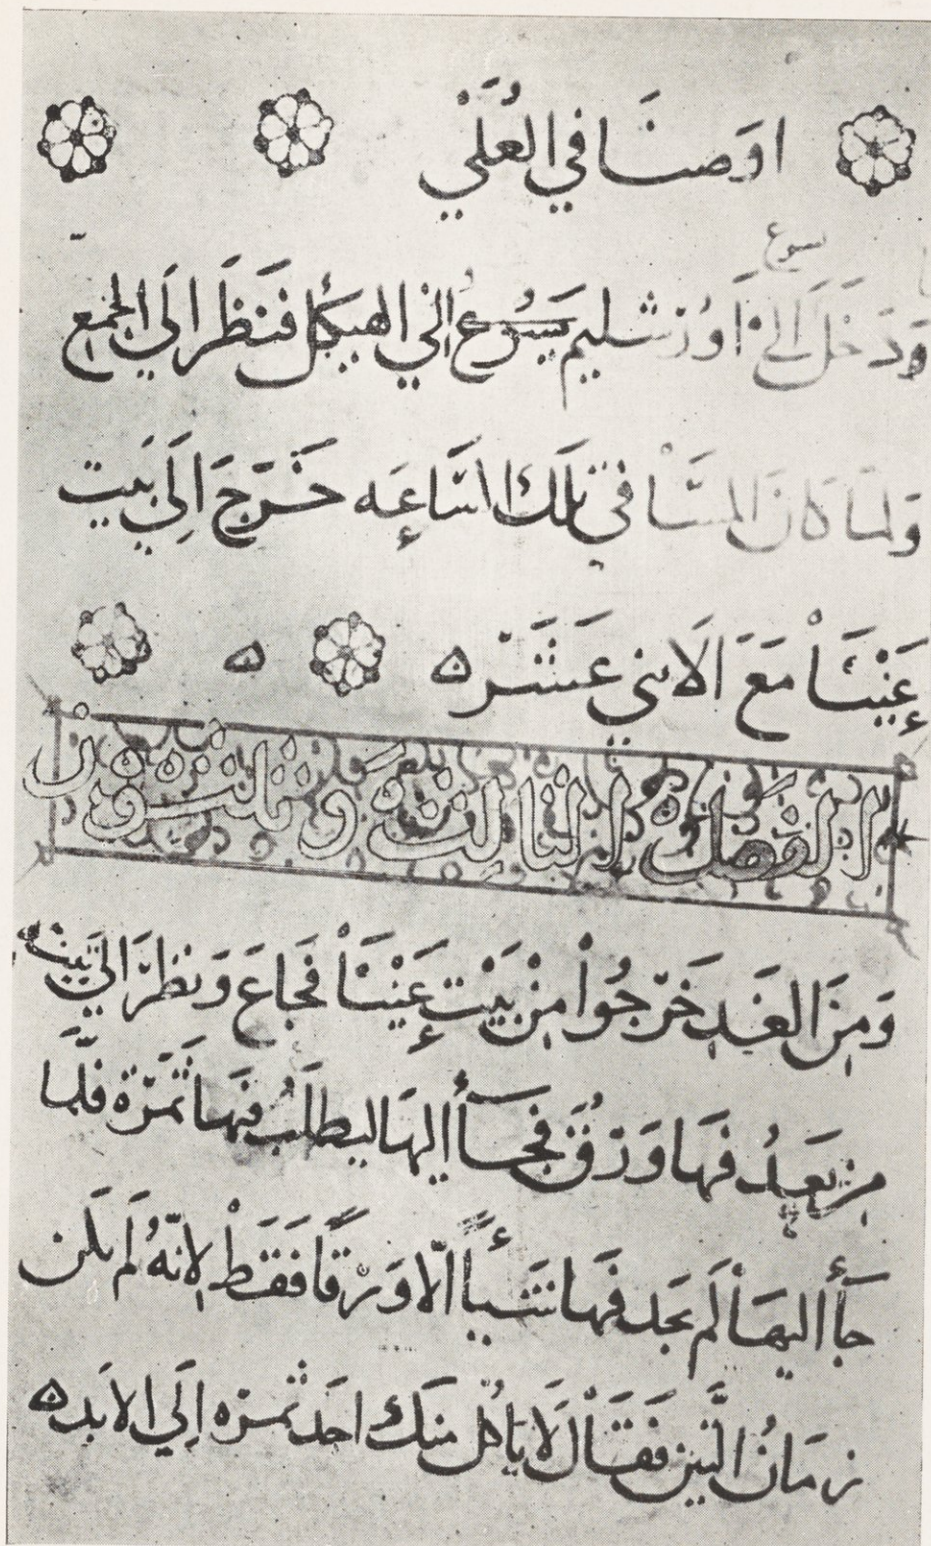 اوصنا في العُلَي
يسوع
وَدَخَلَ اِلَي اَوُرشليم يَسُوعُ اِلي الهيكل فنَظَرَ اِلَي الجمع
وَلمَا كانَ المسَاْ في تلَك السَّاعَه خَرَجَ اِلَي بَيت
عَنِيَاْ مَعَ الاثني عَشَرْ ه ه
الفصل الثالث وثلثون
وَمِنَ الغَدِ خَرَجُواْ مِنْ بَيْت عَنْيَاْ فجَاعَ وَنظرَ اِلَي تينه
من بَعِيدُ فيهَا وَرَقُ فجَاأَ اليهَا ليطلَبُ فيهَا ثَمَرَة فلَمَا
جَاأَ اليهَاْ لَم يجد فيهَا شَياً اِلّا وَرَقًا فَقَطْ لِانّهُ لَم يكن
زمَانُ التين فَقَاْل لَا ياكُل منَك احَد ثمَره اِلَي الابَد ه